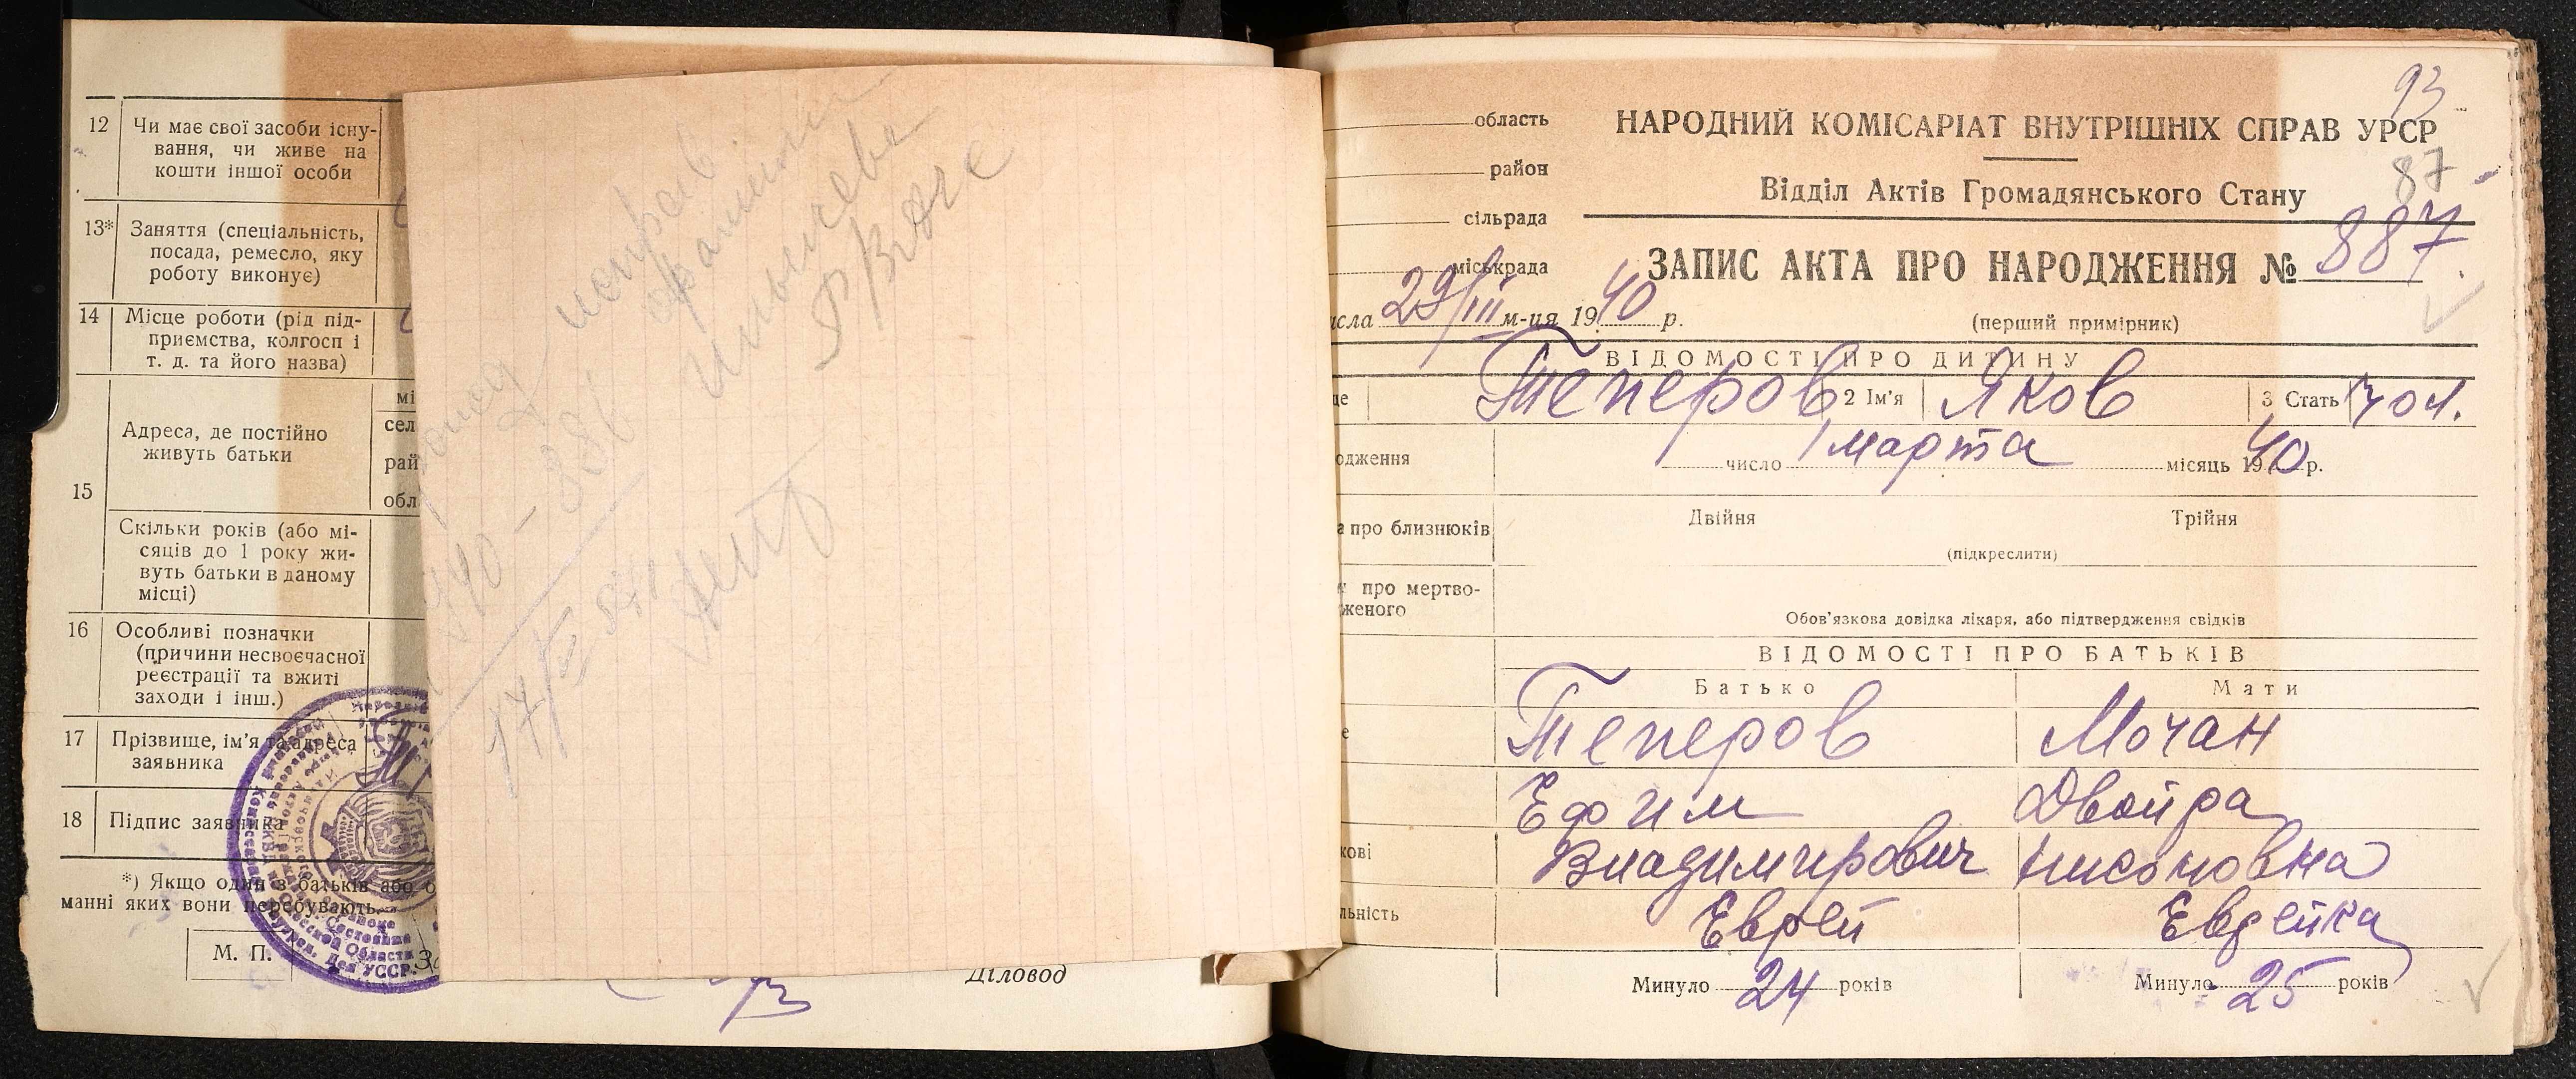 12 Чи має свої засоби існу-
вання, чи живе на
кошти іншої особи
13* Заняття (спеціальність,
посада, ремесло, яку
роботу виконує)
14 Місце роботи (рід під-
приємства, колгосп і
т. д. та його назва)
15
Адреса, де постійно
живуть батьки
мі
сел
рай
обл
Скільки років (або мі-
сяців до 1 року жи-
вуть батьки в даному
місці)
16 Особливі позначки
(причини несвоєчасної
реєстрації та вжиті
заходи і інш.)
17 Прізвище, ім'я та адреса
заявника
18 Підпис заявника
*) Якщо один з батьків або о
манні яких вони перебувають.
М. П.
Діловод
93
область
район
сільрада
міськрада
НАРОДНИЙ КОМІСАРІАТ ВНУТРІШНІХ СПРАВ УРСР
87
Відділ Актів Громадянського Стану
ЗАПИС АКТА ПРО НАРОДЖЕННЯ № 887.
исла 29/III м-ця 1940 р.
(перший примірник)
ВІДОМОСТІ ПРО ДИТИНУ
це Теперов 2 Ім'я Яков 3 Стать чол.
одження число 1 марта місяць 1940 р.
а про близнюків Двійня Трійня
(підкреслити)
про мертво-
женого
Обов'язкова довідка лікаря, або підтвердження свідків
ВІДОМОСТІ ПРО БАТЬКІВ
Батько Мати
е Теперов Мочан
Ефим Двойра
кові Владимирович Нисоновна
льність Еврей Еврейка
Минуло 24 років Минуло 25 років